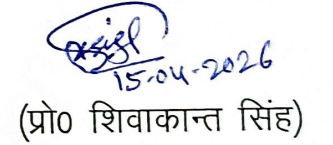 15-04-2026
(प्रो0 शिवाकान्त सिंह)